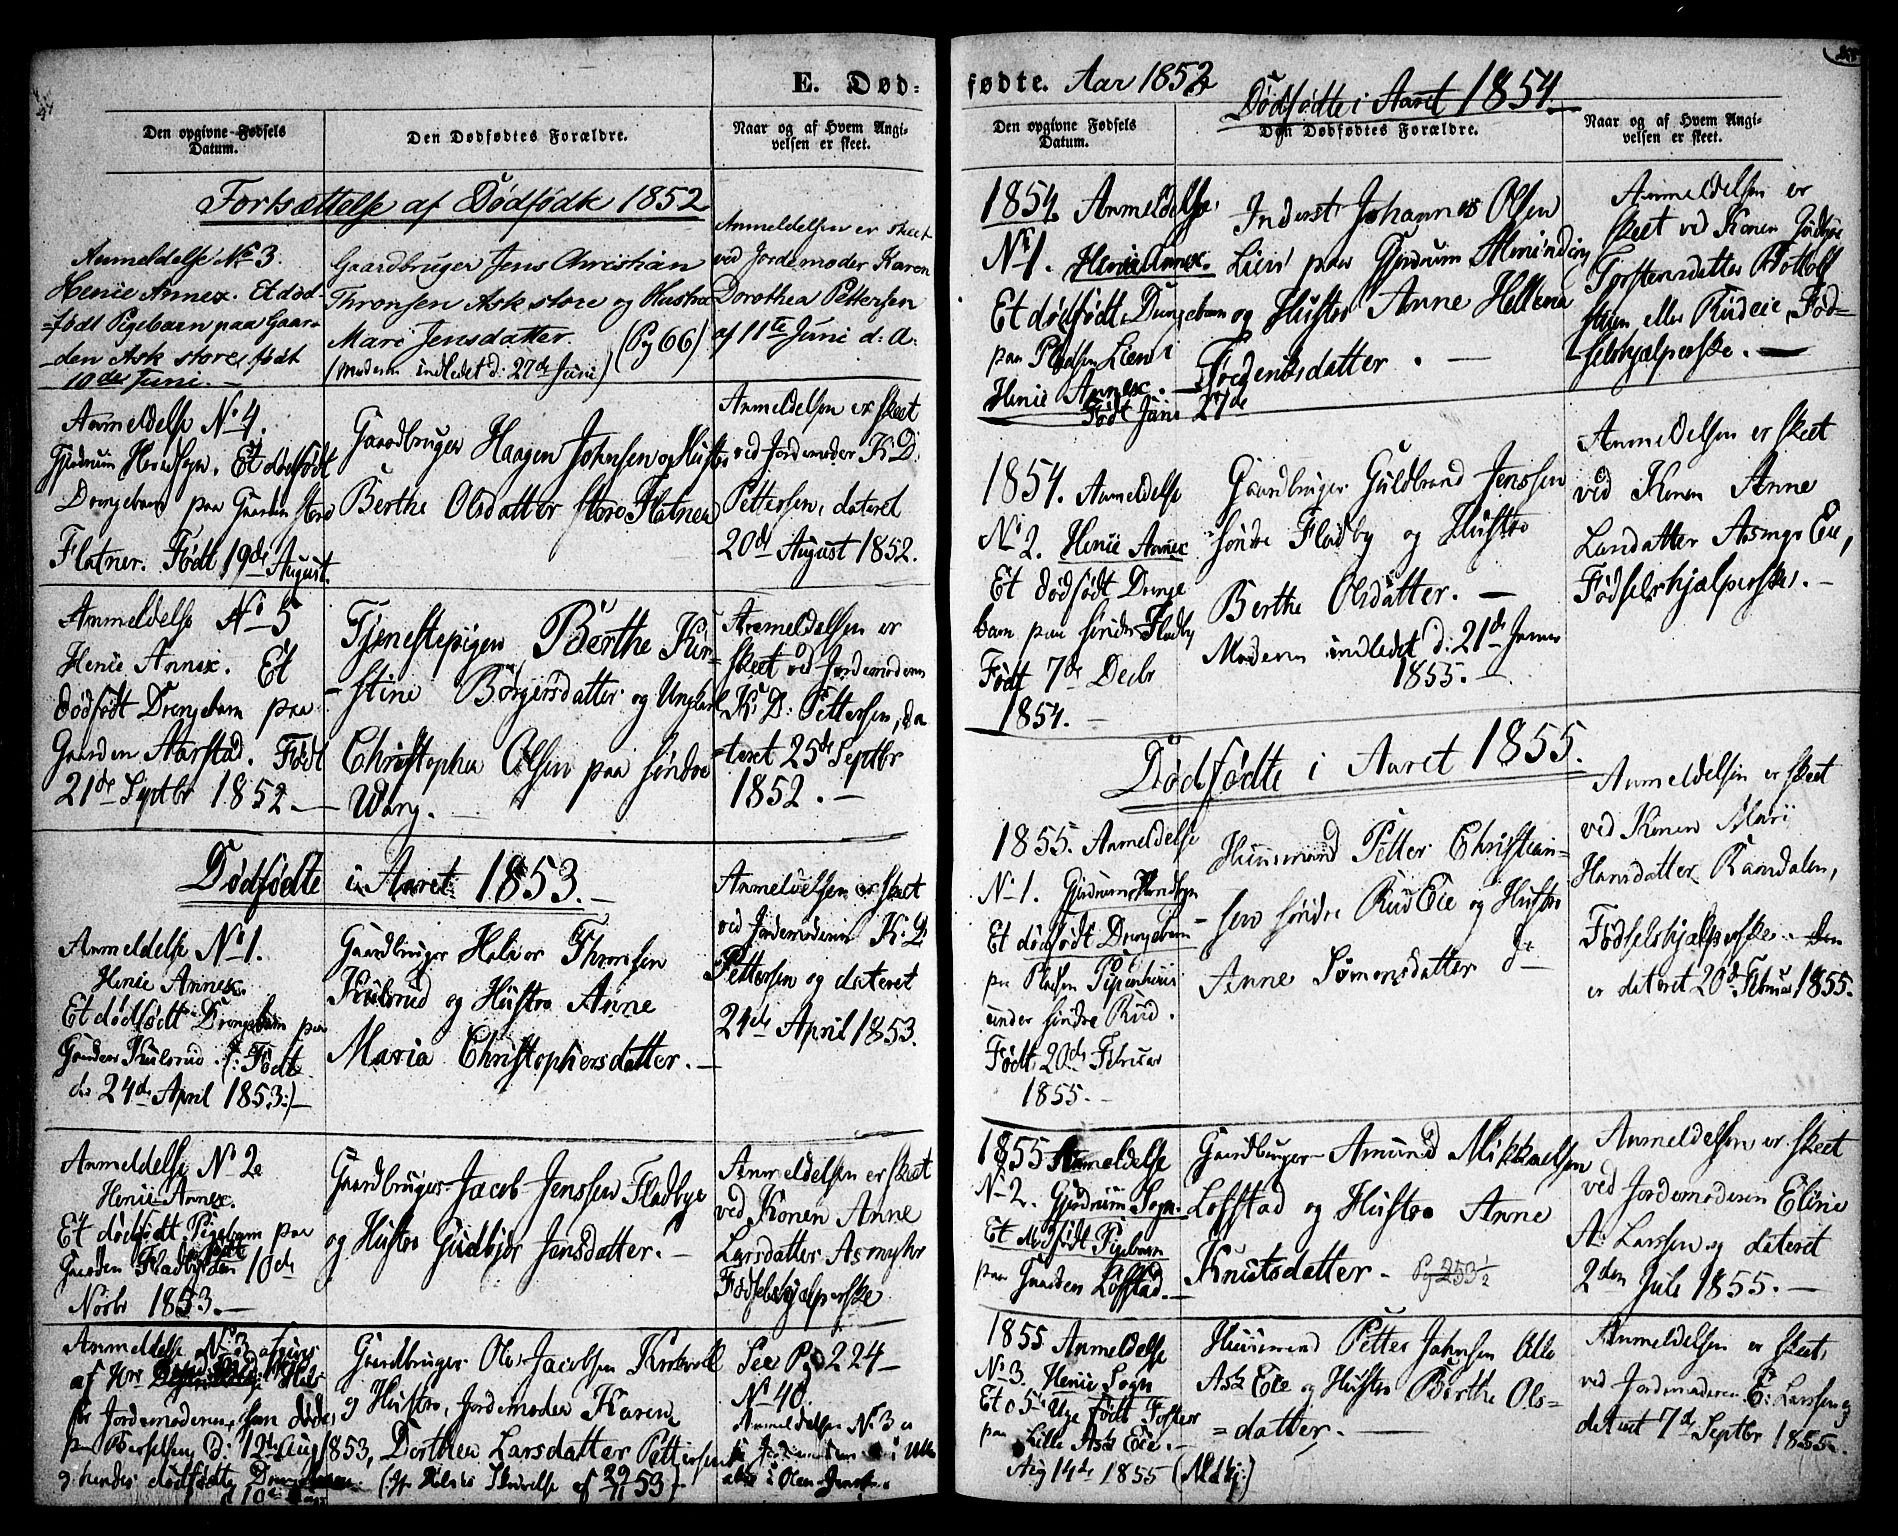 E. Død-
Den opgivne Fødsels
Datum.
Den Dødfødtes Forældre.
Naar og af Hvem Angi-
velsen er skeet.
Fortsættelse af Dødfødte 1852
Anmeldelse No 3.
Henie Annex. Et død-
=født Pigebarn paa Gaar-
den Ask store, født
10de Juni.
Gaardbruger Jens Christian
Thronsen Ask store og Hustru
Mari Jensdatter. (Pg 66)
(Moderen indledet d: 27de Juni)
Anmeldelsen er skeet
ved Jordemoder Karen
Dorothea Pettersen
af 11te Juni d: A:
Anmeldelse No 4.
Gjerdrum Hovedsogn. Et dødfødt
Drengebarn paa Gaarden store
Flatner. Født 19de August.
Gaardbruger Haagen Johnsen og Hustru
Berthe Olsdatter store Flatner
Anmeldelsen er skeet
ved Jordemoder K: D:
Pettersen, dateret
20de August 1852.
Anmeldelse No 5
Henie Annex. Et
dødfødt Drengebarn paa
Gaarden Aarstad. Født
21de Septbr 1852.
Tjenestepigen Berthe Kir-
stine Børgersdatter og Ungkarl
Christopher Olsen paa søndre
Warg.
Anmeldelsen er
skeet ved Jordemoderen
K: D: Pettersen, da
=teret 25de Septbr
1852.
Dødfødte i Aaret 1853.
Anmeldelse No 1.
Henie Annex.
Et dødfødt Drengebarn paa
Gaarden Kulsrud. (: Født
d: 24de April 1853:)
Gaardbruger Halvor Thronsen
Kulsrud og Hustru Anne
Maria Christophersdatter.
Anmeldelsen er skeet
ved Jordemoderen K: D:
Pettersen og dateret
24de April 1853.
Anmeldelse No 2
Henie Annex.
Et dødfødt Pigebarn paa
Gaarden Fladbye født den 10de
Novbr 1853.
Gaardbruger Jacob Jenssen Fladbye
og Hustru Gudbjør Jensdatter.
Anmeldelsen er skeet
ved Konen Anne
Larsdatter Asmyhr
Fødselshjælperske
Anmeldelse No 3 afgives
af Hr
for Jordemoderen, som døde
paa Barselseng d: 12te Aug 1853,
og hendes dødfødte Drengebarn
Gaardbruger Ole Jacobsen
og Hustru, Jordemoder Karen
Dorthea Larsdatter Pettersen
See Pg 224
No 40.
Anmeldelsen No 3
fødte. Aar 1852
Dødfødte i Aaret 1854.
Den opgivne Fødsels
Datum.
Den Dødfødtes Forældre.
Naar og af Hvem Angi-
velsen er skeet.
1854. Anmeldelse
No 1. Henie Annex.
Et dødfødt Drengebarn
paa Pladsen Lien i
Henie Annex.
Født Juni 27de
Inderst Johannes Olsen
Lien paa Gjerdrum Almending
og Hustru Anne Hellena
Anmeldelsen er
skeet ved Konen
Torstensdatter
Stuen eller Rudeie, Fød=
selshjælperske.
1854. Anmeldelse
No 2. Henie Annex
Et dødfødt Drenge
barn paa søndre Fladby
Født 7de Decbr
1854.
Gaardbruger Guldbrand Jenssen
søndre Fladby og Hustru
Berthe Olsdatter.
Moderen indledet d: 21de Januar
1855.
Anmeldelsen er skeet
ved Konen Anne
Larsdatter Asmyr Eie,
Fødselshjælperske.
Dødfødte i Aaret 1855.
1855. Anmeldelse
No 1. Gjerdrum Hovedsogn
Et dødfødt Drengebarn
paa Pladsen
under søndre Rud.
Født 20de Februar
1855.
Huusmand Petter Christian-
sen søndre Rud Eie og Hustru
Anne Simonsdatter
Anmeldelsen er skeet
ved Konen Mari
Hansdatter Ramdalen,
Fødselshjælperske. Den
er dateret 20de Februar 1855.
1855 Anmeldelse
No 2. Gjerdrum Sogn.
Et dødfødt Pigebarn
paa Gaarden Løfstad.
Gaardbruger Amund Mikkaelsen
Løfstad og Hustru Anne
Knutsdatter. Pg 253 1/2
Anmeldelsen er skeet
ved Jordemoderen Eline
A: Larssen og dateret
2den Juli 1855.
1855 Anmeldelse
No 3. Henie Sogn
Et 5 Uge født Foster
paa Lille Ask Eie.
Aug 14de 1855
Huusmand Petter Johnsen Lille
Ask Eie og Hustru Berthe Ols=
=datter.
Anmeldelsen er skeet
ved Jordemoderen E: Larssen og
dateret 7de Septbr 1855.